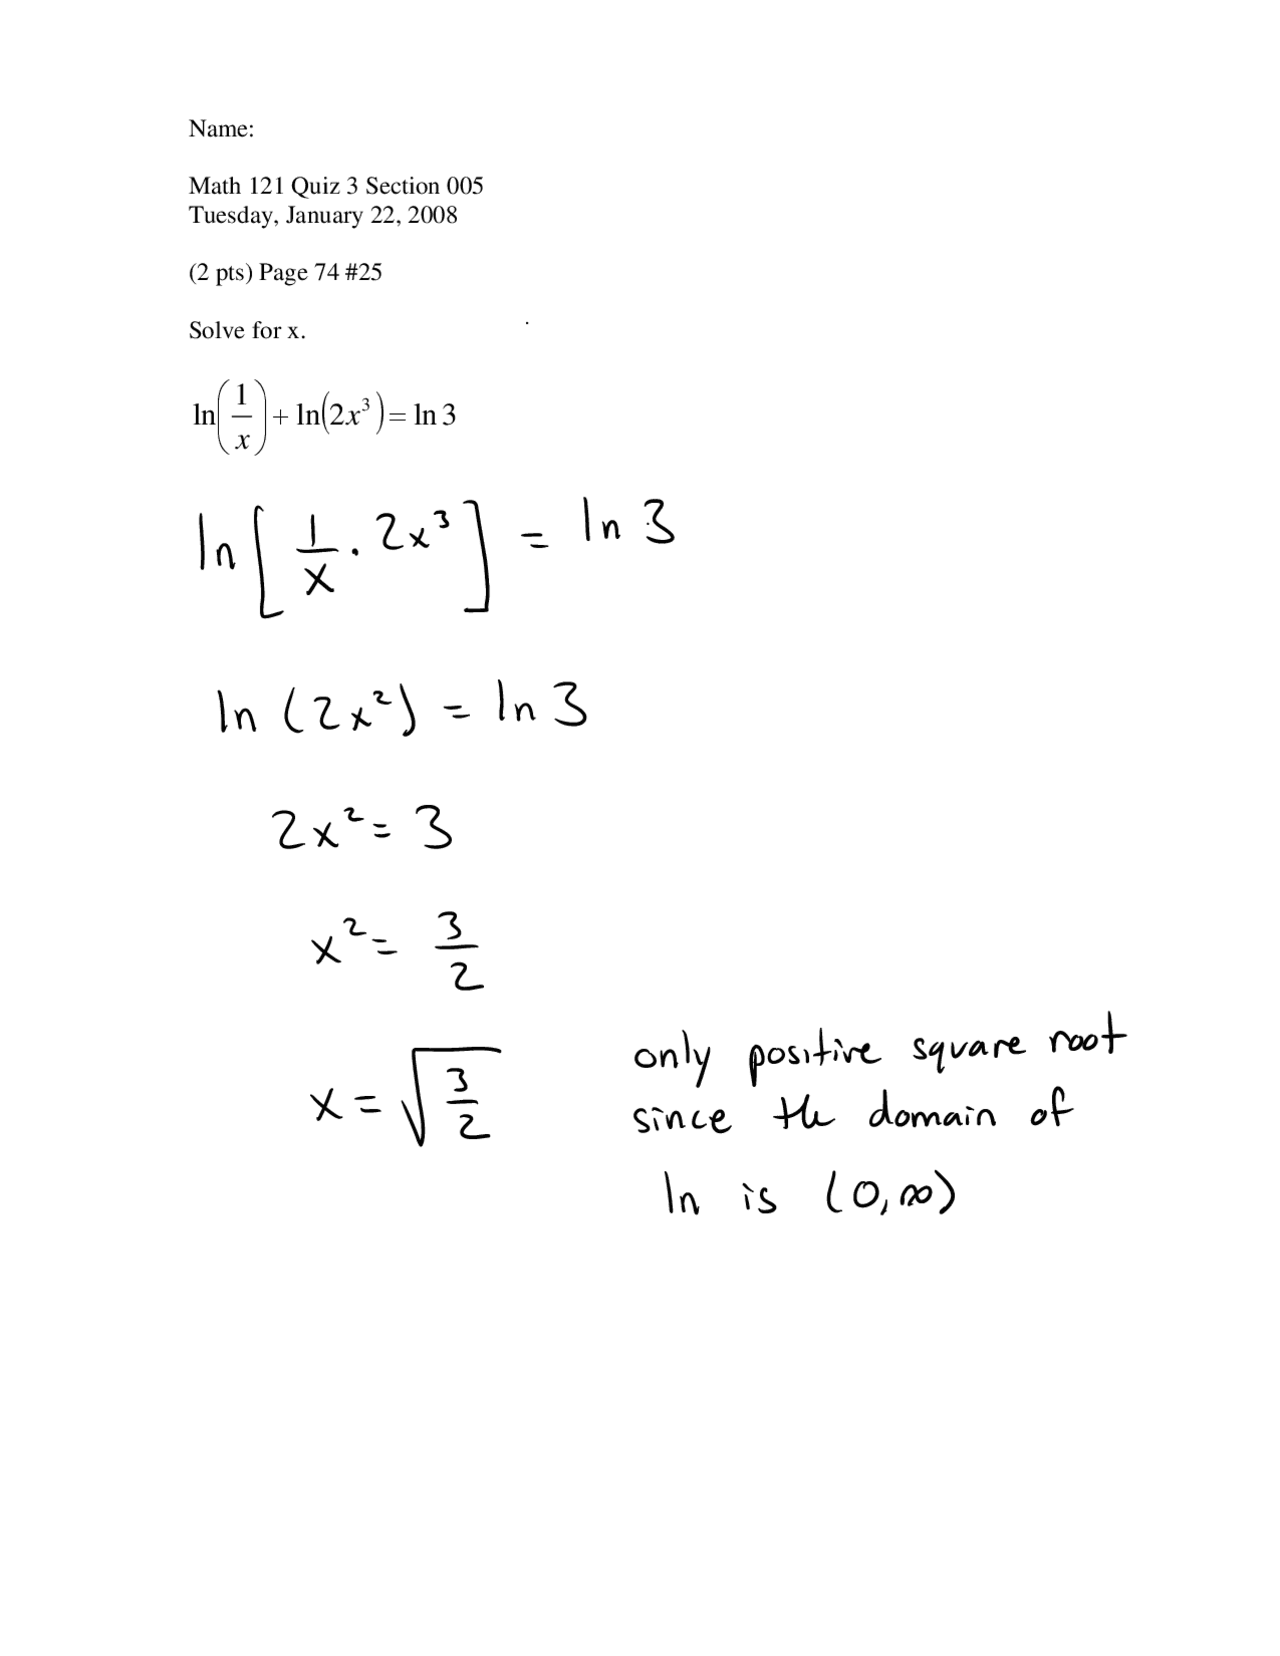 Name:
Math 121 Quiz 3 Section 005
Tuesday, January 22, 2008
(2 pts) Page 74 #25
Solve for x.
ln(1/x) + ln(2x³) = ln 3
ln[1/x · 2x³] = ln 3
ln (2x²) = ln 3
2x² = 3
x² = 3/2
x = √(3/2)
only positive square root
since the domain of
ln is (0, ∞)